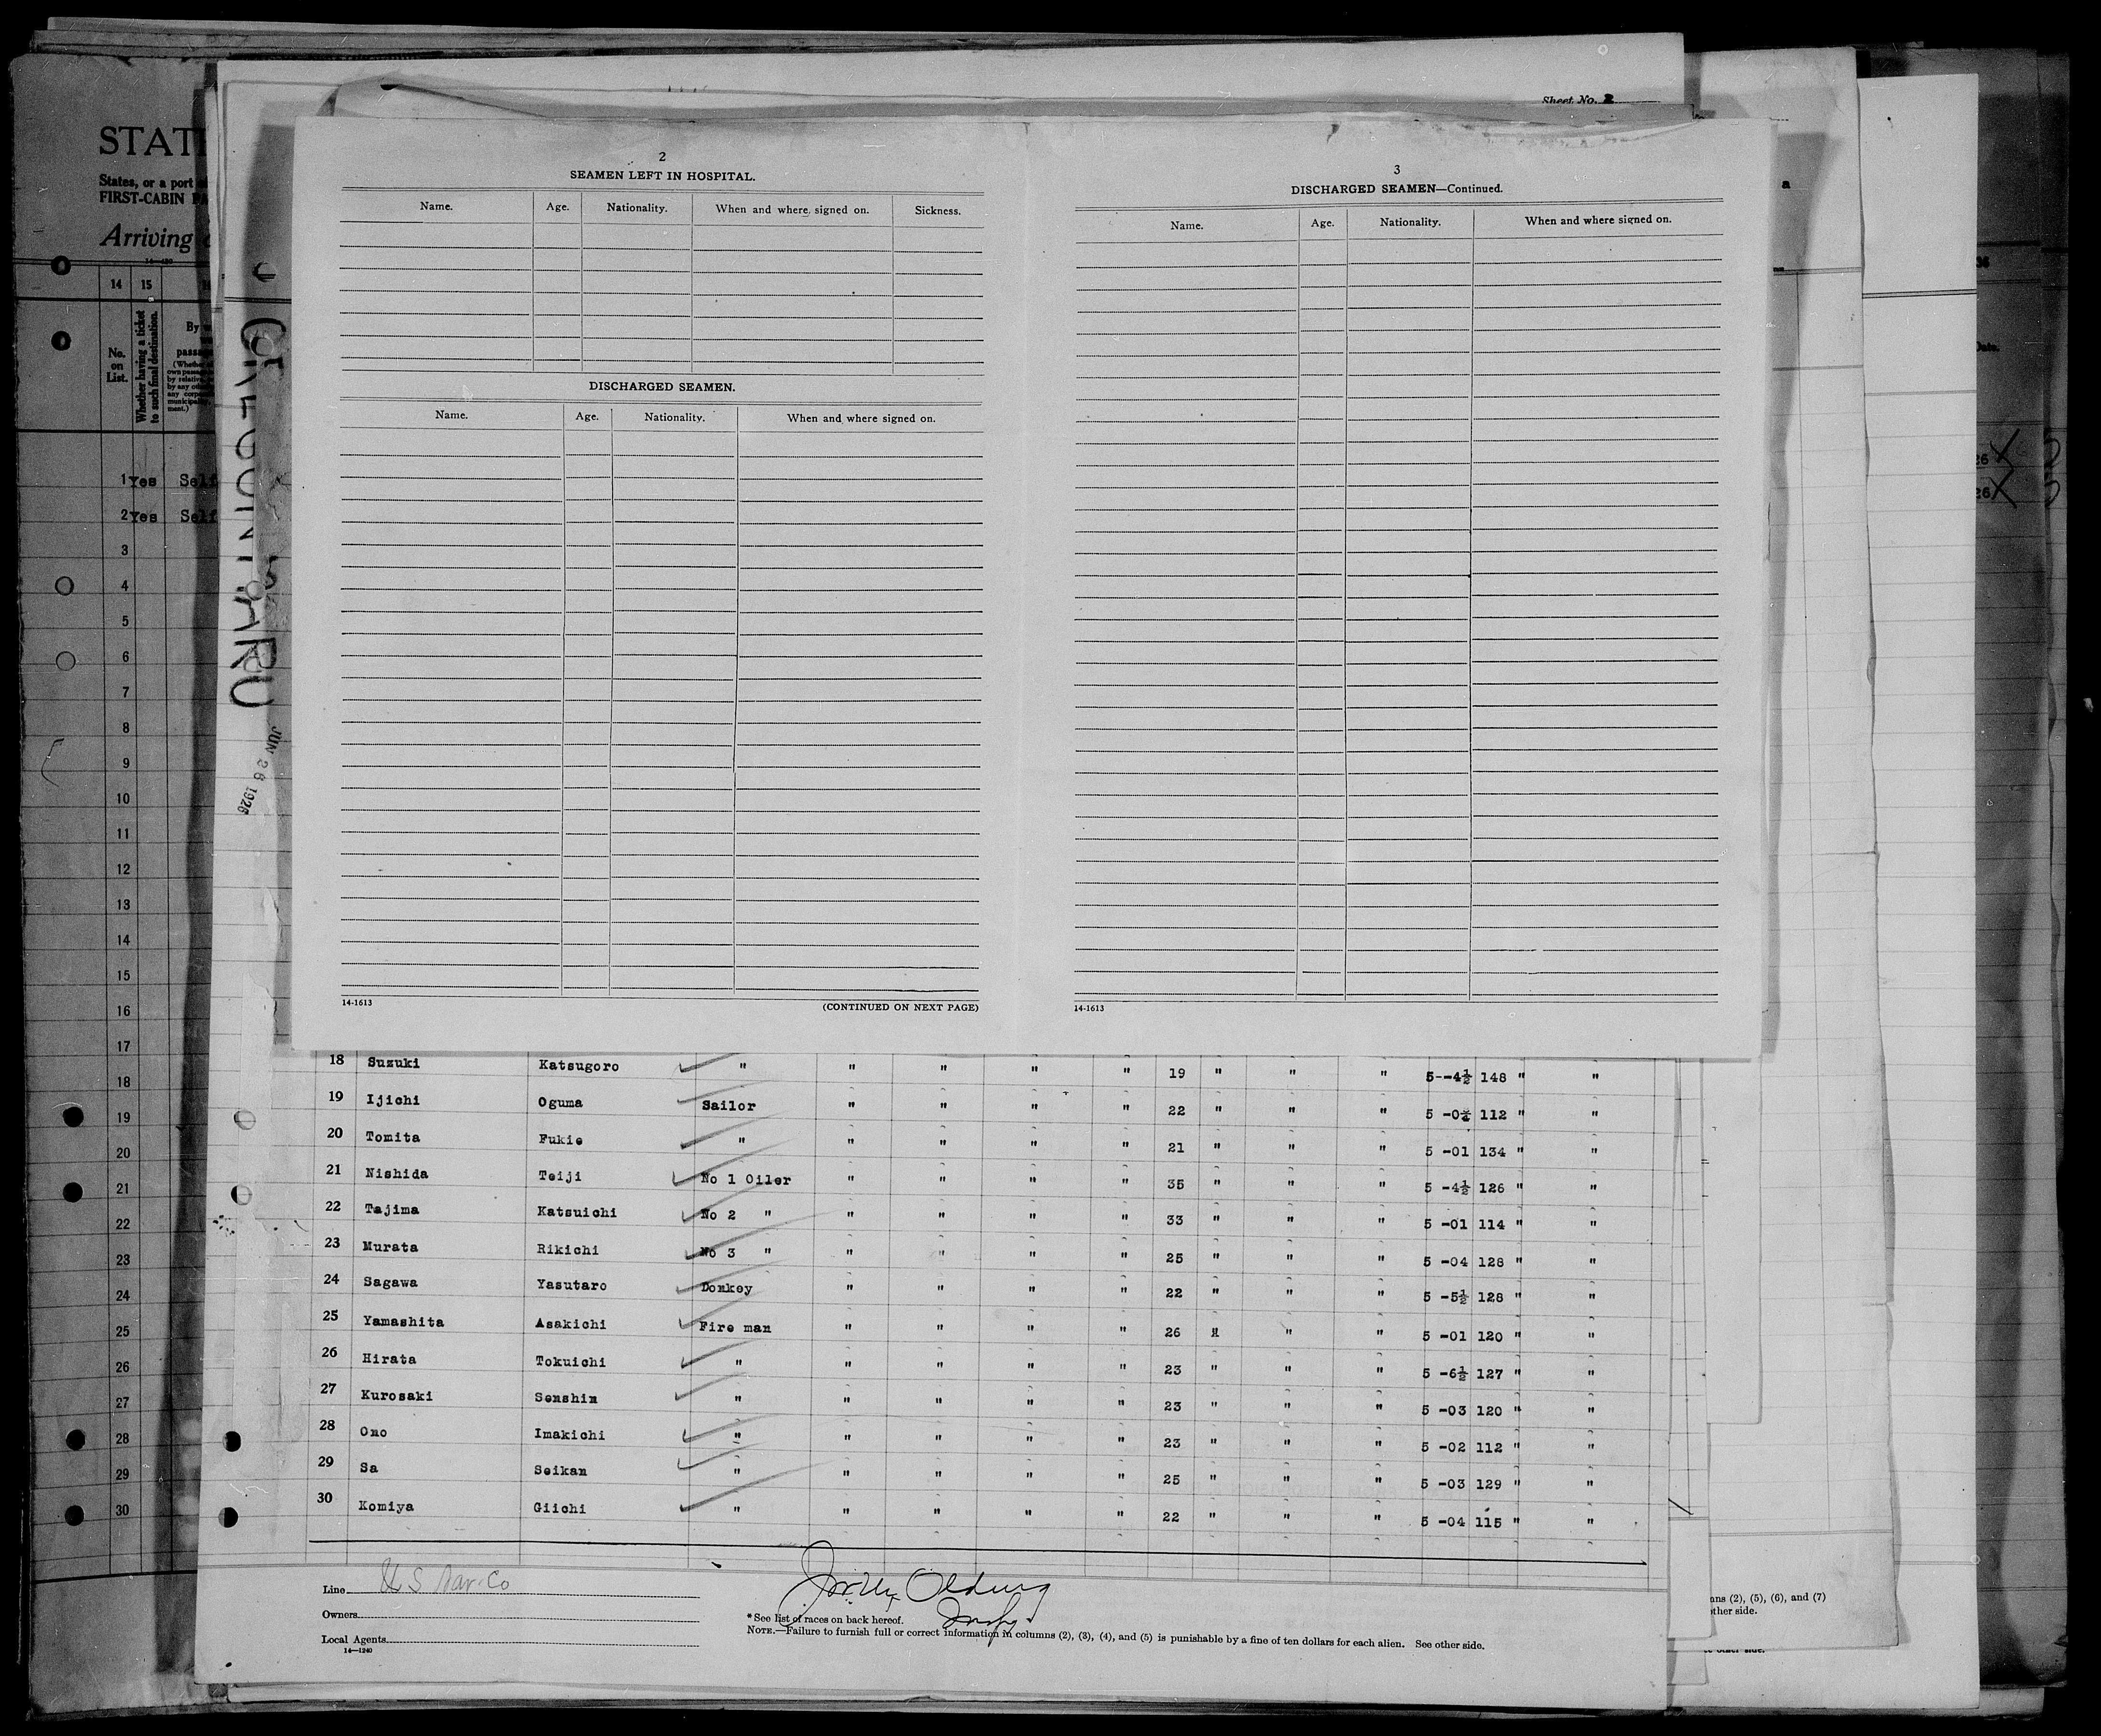 Sheet No. 2
STATI
States, or a port
FIRST-CABIN PA
Arriving
14 15
No. on List.
Whether having a ticket to such final destination.
By w
passa
1 Yes Self
2 Yes Self
3
4
5
6
7
8
9
10
11
12
13
14
15
16
17
18
19
20
21
22
23
24
25
26
27
28
29
30
MARU
JUN 26 1926
2
SEAMEN LEFT IN HOSPITAL.
Name. Age. Nationality. When and where signed on. Sickness.
DISCHARGED SEAMEN.
Name. Age. Nationality. When and where signed on.
14-1613 (CONTINUED ON NEXT PAGE)
3
DISCHARGED SEAMEN—Continued.
Name. Age. Nationality. When and where signed on.
14-1613
18 Suzuki Katsugoro " " " " " 19 " " " 5--4½ 148 " "
19 Ijichi Oguma Sailor " " " " 22 " " " 5 -0¾ 112 " "
20 Tomita Fukie " " " " " 21 " " " 5 -01 134 " "
21 Nishida Teiji No 1 Oiler " " " " 35 " " " 5 -4½ 126 " "
22 Tajima Katsuichi No 2 " " " " " 33 " " " 5 -01 114 " "
23 Murata Rikichi No 3 " " " " " 25 " " " 5 -04 128 " "
24 Sagawa Yasutaro Donkey " " " " 22 " " " 5 -5½ 128 " "
25 Yamashita Asakichi Fire man " " " " 26 " " " 5 -01 120 " "
26 Hirata Tokuichi " " " " " 23 " " " 5 -6½ 127 " "
27 Kurosaki Senshin " " " " " 23 " " " 5 -03 120 " "
28 Ono Imakichi " " " " " 23 " " " 5 -02 112 " "
29 Sa Seikan " " " " " 25 " " " 5 -03 129 " "
30 Komiya Giichi " " " " " 22 " " " 5 -04 115 " "
Line U S Nav. Co
Owners
Local Agents
14—1240
*See list of races on back hereof.
NOTE.—Failure to furnish full or correct information in columns (2), (3), (4), and (5) is punishable by a fine of ten dollars for each alien. See other side.
ns (2), (5), (6), and (7)
other side.